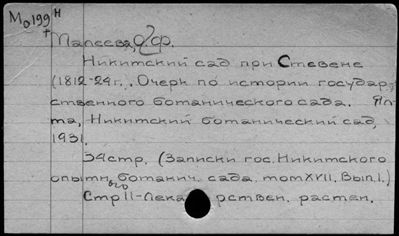 Мо199 н
+
Малеева, О.Ф.
Никитский сад при Стевене
(1812-24г.). Очерк по истории государ-
ственного ботанического сада. Ял-
та, Никитский ботанический сад,
1931.
34стр. (Записки гос. Никитского
опытного ботанич. сада. том XVII. Вып.1.)
Стр 11-Лека рствен. растен.